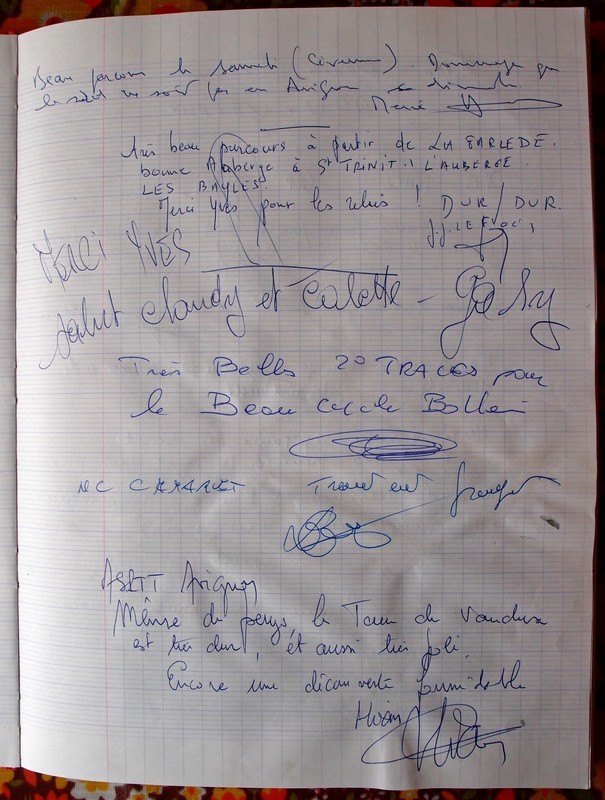 Beau parcours le samedi (Cévennes). Dommage que
le soleil ne soit pas en Avignon ce dimanche.
Merci
très beau parcours à partir de LA FARLEDE.
bonne Auberge à St TRINIT !! L'AUBERGE
LES BAYLES.
Merci Yves pour les relais ! DUR/DUR.
MERCI YVES
Salut Claudy et Colette - 
Très Belles 20 TRACES pour
le Beau cyclo
MC CAMARET Tout est
ASPTT Avignon
Même de pays, le Tour du Vaucluse
est très dur, et aussi très joli.
Encore une découverte formidable